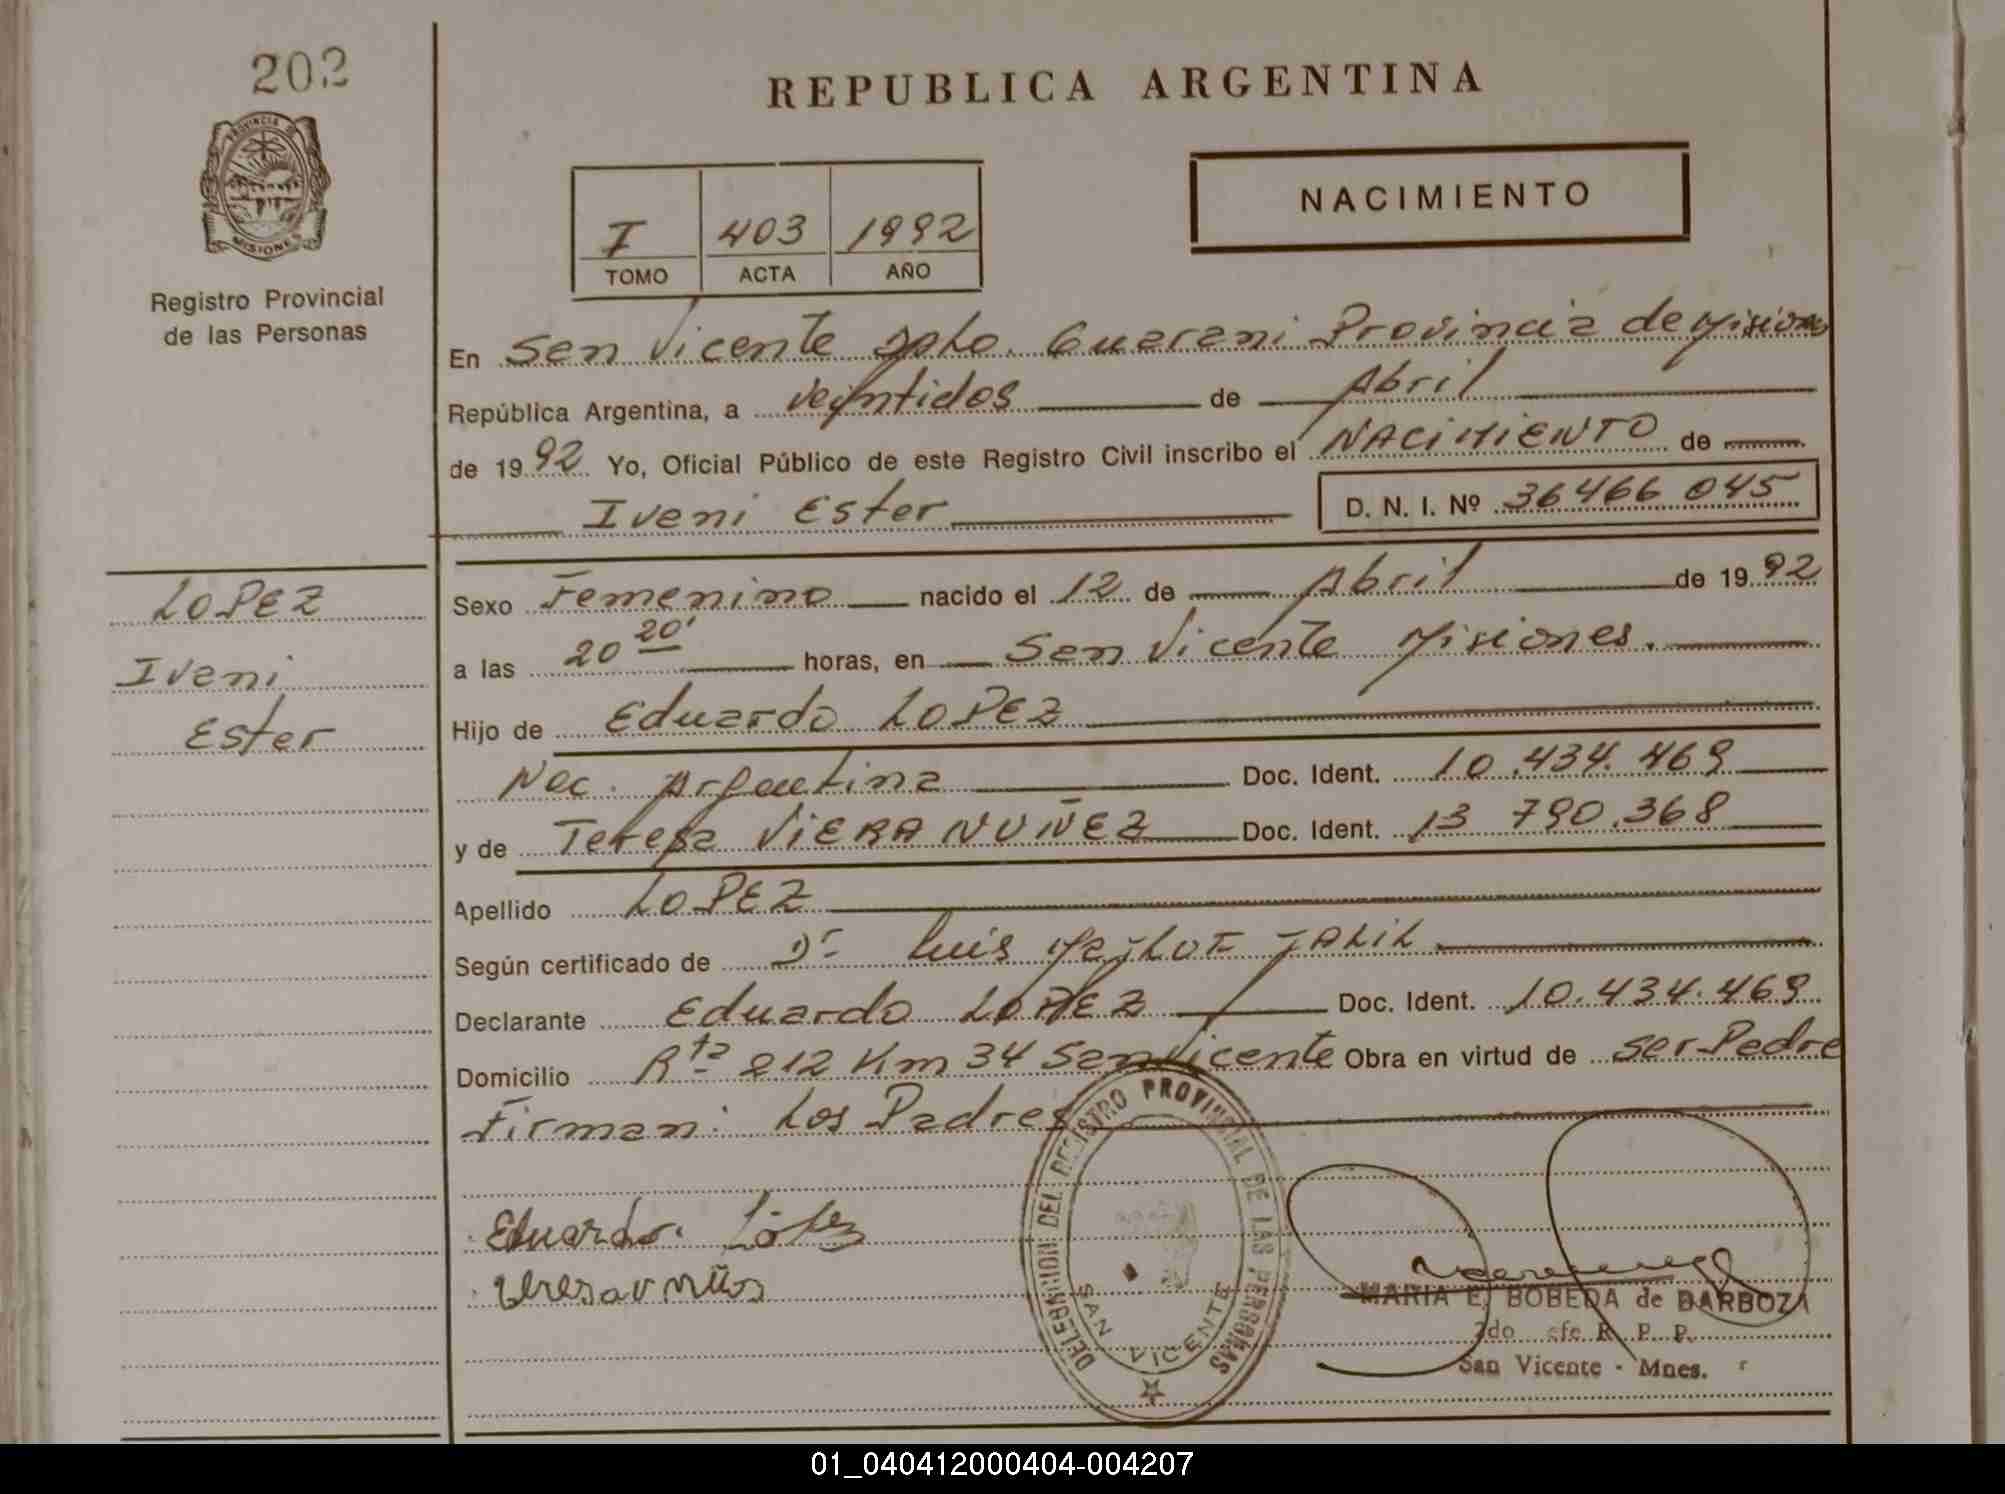 202
PROVINCIA DE
MISIONES
Registro Provincial
de las Personas
REPUBLICA ARGENTINA
I 403 1992
TOMO ACTA AÑO
NACIMIENTO
En San Vicente Dpto. Guarani Provincia de Misiones
República Argentina, a veintidos de Abril
de 1992 Yo, Oficial Público de este Registro Civil inscribo el NACIMIENTO de
Iveni Ester D. N. I. Nº 36466 045
LOPEZ
Iveni
Ester
Sexo Femenino nacido el 12 de Abril de 1992
a las 20 20' horas, en San Vicente Misiones.
Hijo de Eduardo LOPEZ
Nac. Argentina Doc. Ident. 10.434.469
y de Teresa VIERA NUÑEZ Doc. Ident. 13 790.368
Apellido LOPEZ
Según certificado de Dr Luis JALIL
Declarante Eduardo LOPEZ Doc. Ident. 10.434.469
Domicilio Rta 212 Km 34 San Vicente Obra en virtud de ser Padre
Firman: Los Padres
Eduardo López
DELEGACION DEL REGISTRO PROVINCIAL DE LAS PERSONAS
SAN VICENTE
MARIA E. BOBEDA de BARBOZA
2do efe R. P. P.
San Vicente - Mnes.
01_040412000404-004207